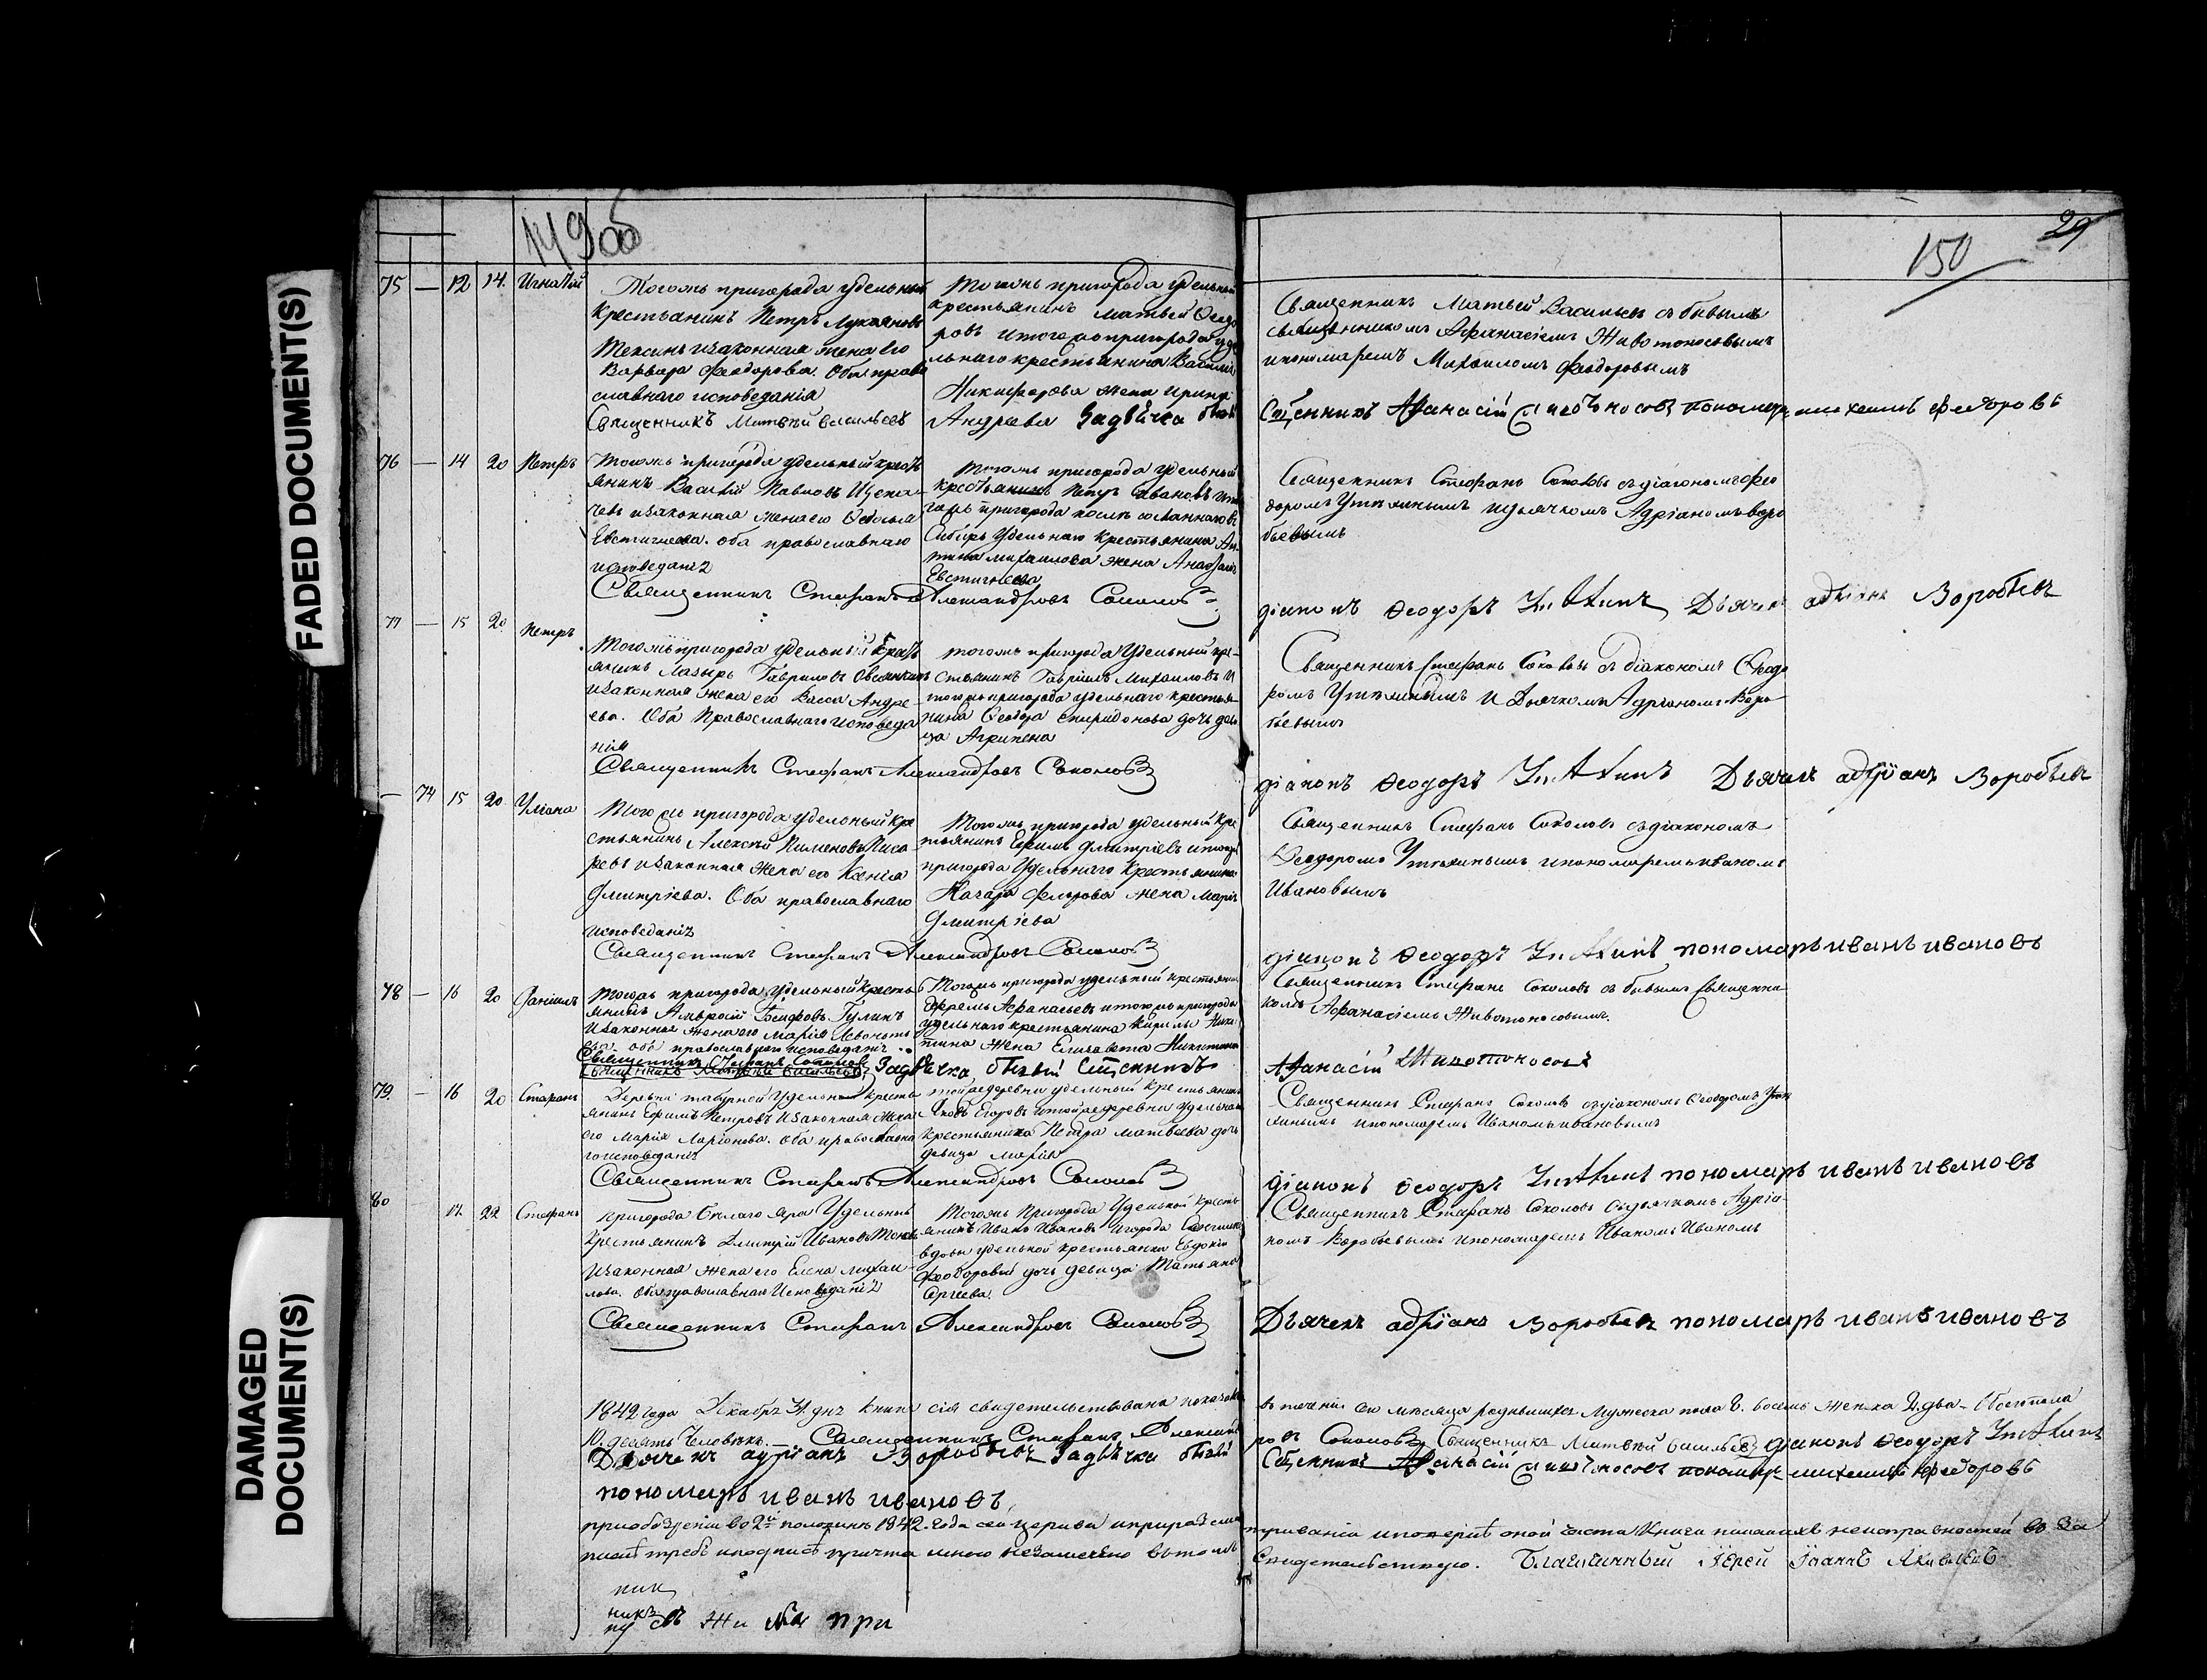 FADED DOCUMENT(S)
DAMAGED
DOCUMENT(S)
149об
150
29
75 — 12 14. Игнатій
Тогожъ пригорода удельный
крестьянинъ Петръ Лукьяновъ
и законная жена его
Варвара Феодорова. Оба право
славнаго исповеданія
Священникъ Матвѣй Васильевъ
Тогожъ пригорода удельный
крестьянинъ Матвей Феодо
ровъ итогожъ пригорода уде
льнаго крестьянина Василія
Никифорова жена Ирина
Андреева Задьячка бывый
Священникъ Матвей Васильевъ съ бывымъ
священникомъ Афанасіемъ Животоносовымъ
ипономаремъ Михаиломъ Феодоровымъ
Сщенникъ Афанасій Животоносовъ пономарь михаилъ федоровъ
76 — 14 20 Петръ
Тогожъ пригорода удельный кресть
янинъ Василій Павловъ
изаконная жена его
Евстигнеева. оба православнаго
исповеданія
Священникъ Стефанъ Александровъ Соколовъ
Тогожъ пригорода удельный
крестьянинъ Петръ Ивановъ ито
гожъ пригорода сосланнаго въ
Сибирь удельнаго крестьянина
Михаилова жена
Евстигнеева
Священникъ Стефанъ Соколовъ съ діакономъ Фео
доромъ Утехинымъ идьячкомъ Адріаномъ Воро
бьевымъ
діаконъ Феодоръ Утехинъ Дьячекъ адріанъ Воробьевъ
77 — 15 20 Петръ
Тогожъ пригорода удельный кресть
янинъ Лазырь Гавриловъ Овсянкинъ
изаконная жена его Васса Андре
ева. Оба Православнаго исповеда
нія
Священникъ Стефанъ Александровъ Соколовъ
тогожъ пригорода Удельный кре-
стьянинъ Гаврiилъ Михаиловъ и
тогожъ пригорода удельнаго крестья-
нина Феодора Спиридонова дочь деви
ца Агрипена
Священникъ Стефанъ Соколовъ съ діакономъ Феодо
ромъ Утехинымъ и Дьячкомъ Адріаномъ Воро-
бьевымъ
діаконъ Феодоръ Утехинъ Дьячекъ адріанъ Воробьевъ
— 74 15 20 Уліана
Тогожъ пригорода удельный кре
стьянинъ Алексѣй Пименовъ Писа-
ревъ изаконная жена его Ксенія
Дмитріева. Оба православнаго
исповеданія
Священникъ Стефанъ Александровъ Соколовъ
Тогожъ пригорода удельный кре
стьянинъ Ефимъ Дмитріевъ итогожъ
пригорода Удельнаго крестьянина
Назара Федорова жена Марія
Дмитріева
Священникъ Стефанъ Соколовъ съ діакономъ
Феодоромъ Утехинымъ ипономаремъ иваномъ
Ивановымъ
діаконъ Феодоръ Утехинъ пономарь иванъ ивановъ
78 — 16 20 Даніилъ
Тогожъ пригорода Удельный кресть
янинъ Амвросій Гулинъ
изаконная жена его Марія
оба православнаго исповеданія
Священникъ Стефанъ Соколовъ
Священникъ Матвѣй Васильевъ Задьячка бывый Сщенникъ
Тогожъ пригорода удельный крестьянинъ
Ефремъ Афанасьевъ итогожъ пригорода
удельнаго крестьянина Кирилы Ники
тина жена Елизавета Никитина
Священникъ Стефанъ Соколовъ съ бывымъ Священни
комъ Афанасіемъ Животоносовымъ.
Афанасій Животоносовъ
79 — 16 20 Стефанъ
Деревни удельный кресть
янинъ Ефимъ Петровъ изаконная жена
его Марія Ларіонова. оба православна
го исповеданія
Священникъ Стефанъ Александровъ Соколовъ
тойжедеревни удельный крестьянинъ
Яковъ Егоровъ итойжедеревни удельнаго
крестьянина Петра Матвѣева дочь
девица Марія
Священникъ Стефанъ Соколовъ съ діакономъ Феодоромъ Уте
хинымъ ипономаремъ Иваномъ ивановымъ
діаконъ Феодоръ Утехинъ пономарь иванъ ивановъ
80 17 22 Стефанъ
пригорода Белаго яра Удельный
крестьянинъ Дмитрій Ивановъ
изаконная жена его Елена Михаи-
лова. Оба православнаго исповеданія
Священникъ Стефанъ Александровъ Соколовъ
Тогожъ Пригорода Удельной кресть
янинъ Иванъ Ивановъ игорода
вдовы удельной крестьянки Евдокіи
Феодоровой дочь девица Татьяна
Сергеева
Священникъ Стефанъ Соколовъ съ дьячкомъ Адріа-
номъ Воробьевымъ ипономаремъ Иваномъ Иваномъ
Дьячекъ адріанъ Воробьевъ пономарь иванъ ивановъ
1842 года Декабря 31 дня книга сія свидетельствована
в теченіи сего месяца родившихся Мужеска пола 8. восемь женска 2. два - Обоегопола
10. десять Человекъ. Священникъ Стефанъ Александ
ровъ Соколовъ Священникъ Матвѣй Васильевъ діаконъ Феодоръ Утехинъ
Дьячекъ адріанъ Воробьевъ Задьячка бывый
Сщенникъ Афанасій Животоносовъ пономарь михаилъ федоровъ
пономарь иванъ ивановъ
приобозреніи во 2й половинѣ 1842. года сей церкви ипри
триваніи оной части книги неисправностей
требъ иподписѣ причта мною незамечено въ томъ
Свидетельствую. Благочинный Іерей Іоаннъ Яковлевъ
ник
никъ
съ Жи при